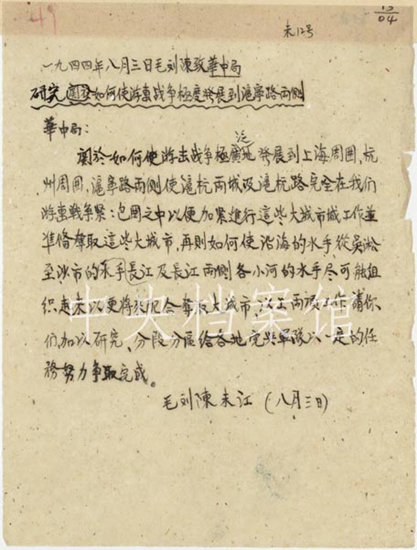 49
15/04
未12号
一九四四年八月三日毛刘陳致華中局
研究 如何使游击战争極廣發展到滬寧路两侧
華中局：
關於如何使游击战争極廣泛地發展到上海周围，杭
州周围，滬寧路两侧使滬杭两城及滬杭路完全在我们
游击战争緊：包围之中以便加紧進行這些大城市城工作並
準备奪取這些大城市，再则如何使沿海的水手從吴淞
至沙市的水手長江及長江两侧各小河的水手尽可能组
织起来以更将来配合奪取大城市，以上两项工作請你
们加以研究、分段分區给各地党與軍隊以一定的任
務努力争取完成。
毛刘陳未江（八月三日）
中央档案馆